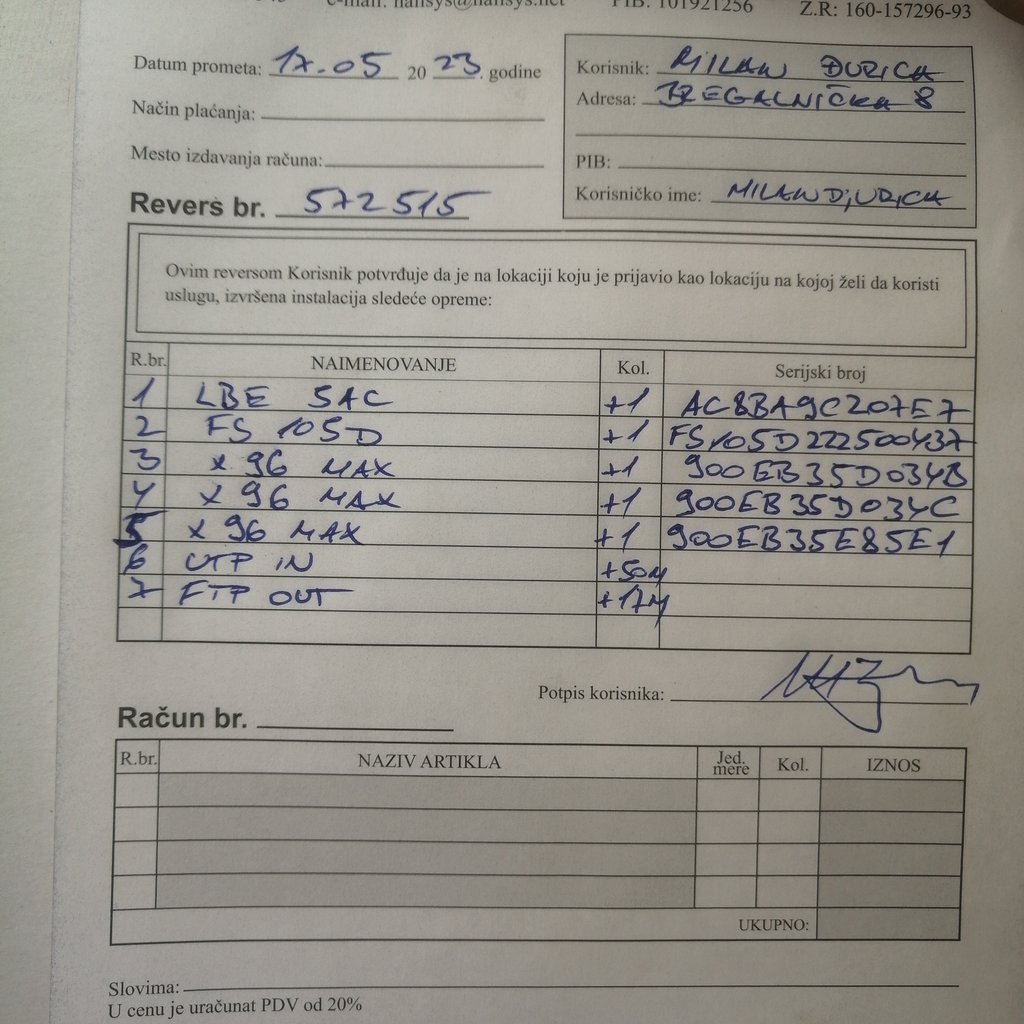 e-mail: hansys@hansys.net PIB: 101921256 Z.R: 160-157296-93
Datum prometa: 17.05 2023. godine
Korisnik: MILAN ĐURICA
Adresa: BREGALNIČKA 8
Način plaćanja:
Mesto izdavanja računa:
PIB:
Revers br. 572515
Korisničko ime: MILANDJURICA
Ovim reversom Korisnik potvrđuje da je na lokaciji koju je prijavio kao lokaciju na kojoj želi da koristi
uslugu, izvršena instalacija sledeće opreme:
R.br. NAIMENOVANJE Kol. Serijski broj
1 LBE 5AC +1 AC8BA9C207E7
2 FS 105D +1 FS105D222500437
3 X96 MAX +1 900EB35D034B
4 X96 MAX +1 900EB35D034C
5 X96 MAX +1 900EB35E85E1
6 UTP IN +50M
7 FTP OUT +17M
Potpis korisnika:
Račun br.
R.br. NAZIV ARTIKLA Jed. mere Kol. IZNOS
UKUPNO:
Slovima:
U cenu je uračunat PDV od 20%